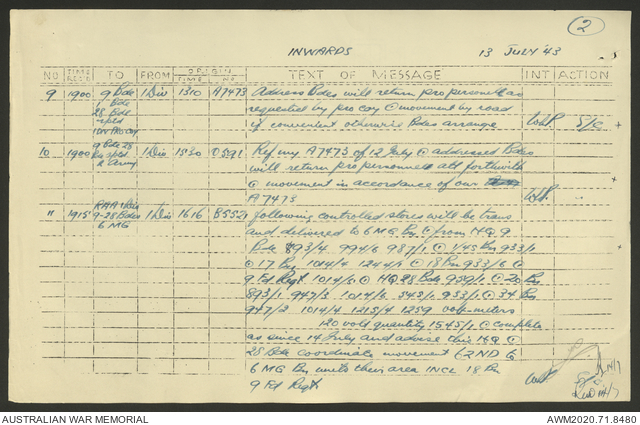 2
INWARDS 13 JULY '43
NO TIME REC'D TO FROM ORIGIN TIME NO TEXT OF MESSAGE INT ACTION
9 1900 9 Bde 1 Div 1310 A7473 Address Bdes will return pro personnel as
requested by pro coy @ movement by road
if convenient otherwise Bdes arrange
28 Bde
10 1900 1 Div 1330 0591 Ref my A7473 of 12 July @ addressed Bdes
will return pro personnel att forthwith
@ movement in accordance of our
A7473
11 1915 RAA 1 Div 1 Div 1616 B552 following controlled stores will be trans
9-28 Bdes and delivered to 6 MG Bn @ from HQ 9
6 MG Bde 893/4 994/6 987/1 @ 1/45 Bn 933/1
@ 17 Bn 1014/4 @ 18 Bn 933/6 @
9 Fd Regt 1014/6 @ HQ 28 Bde 959/1 @ 20 Bn
893/1 947/3 1014/6 543/1 933/1 @ 34 Bn
947/2 1014/4 1215/4 1259 volt-meters
120 volt quantity 1545/1 @ complete
as since 14 July and advise this HQ @
28 Bde coordinate movement 62ND @
6 MG Bn units their area INCL 18 Bn
9 Fd Regt
14/7
AUSTRALIAN WAR MEMORIAL
AWM2020.71.8480